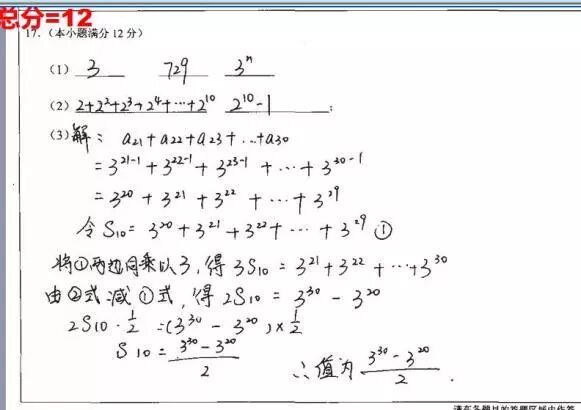 总分=12
17.（本小题满分12分）
(1) 3 729 3ⁿ
(2) 2+2²+2³+2⁴+…+2¹⁰ 2¹⁰-1 ;
(3) 解： a₂₁+a₂₂+a₂₃+…+a₃₀
=3²¹⁻¹+3²²⁻¹+3²³⁻¹+…+3³⁰⁻¹
=3²⁰+3²¹+3²²+…+3²⁹
令S₁₀=3²⁰+3²¹+3²²+…+3²⁹ ①
将①两边同乘以3,得3S₁₀=3²¹+3²²+…+3³⁰
由②式减①式,得2S₁₀=3³⁰-3²⁰
2S₁₀·½=(3³⁰-3²⁰)×½
S₁₀=(3³⁰-3²⁰)/2 ∴值为(3³⁰-3²⁰)/2.
请在各题目的答题区域内作答